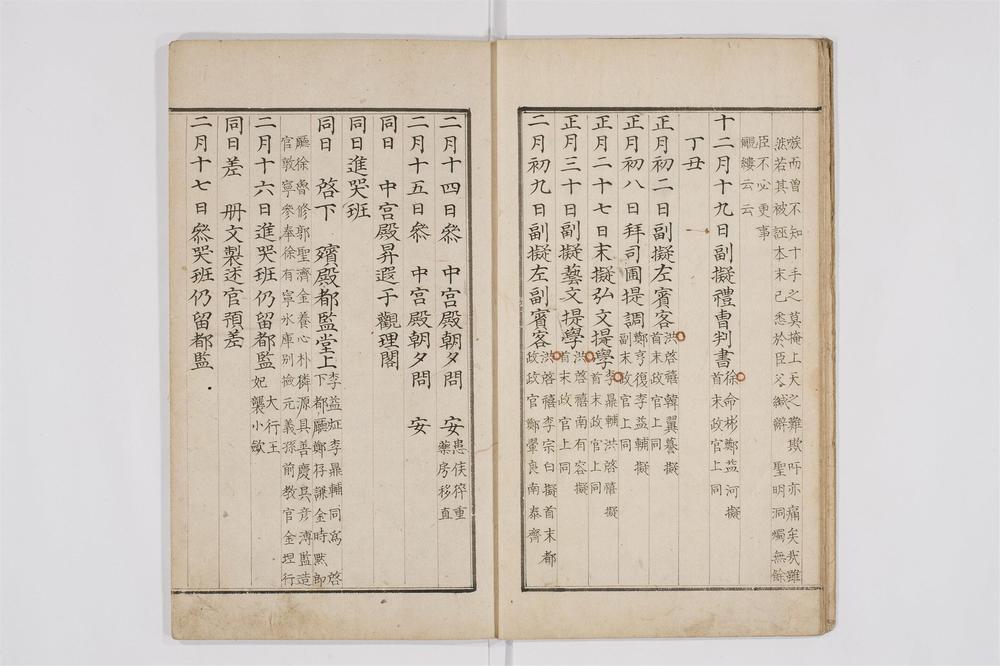 喉而曾不知十手之莫掩上天之難欺吁亦痛矣我雖
然若其被誣本末已悉於臣父緘辭 聖明洞燭無餘
臣不必更事
覼縷云云
十二月十九日副擬禮曹判書徐命彬鄭益河擬
首末政官上同
丁丑
正月初二日副擬左賓客洪啓禧韓翼謩擬
首末政官上同
正月初八日拜司圃提調鄭亨復李益輔擬
副末政官上同
正月二十七日末擬弘文提學李鼎輔洪啓禧擬
首末政官上同
正月三十日副擬藝文提學洪啓禧南有容擬
首末政官上同
二月初九日副擬左副賓客洪啓禧李宗白擬首末都
政政官鄭翬良南泰齊
二月十四日參 中宮殿朝夕問 安患候猝重
藥房移直
二月十五日參 中宮殿朝夕問 安
同日 中宮殿昇遐于觀理閣
同日進哭班
同日 啓下 殯殿都監堂上李益炡李鼎輔同爲 啓
下都廳鄭存謙金時默郎
廳徐魯修郭聖濟金養心朴璘源具善慶具彥溥監造
官敦寧參奉徐有寧氷庫別檢元義孫前敎官金坦行
二月十六日進哭班仍留都監 大行王
妃襲小斂
同日差 冊文製述官預差
二月十七日參哭班仍留都監